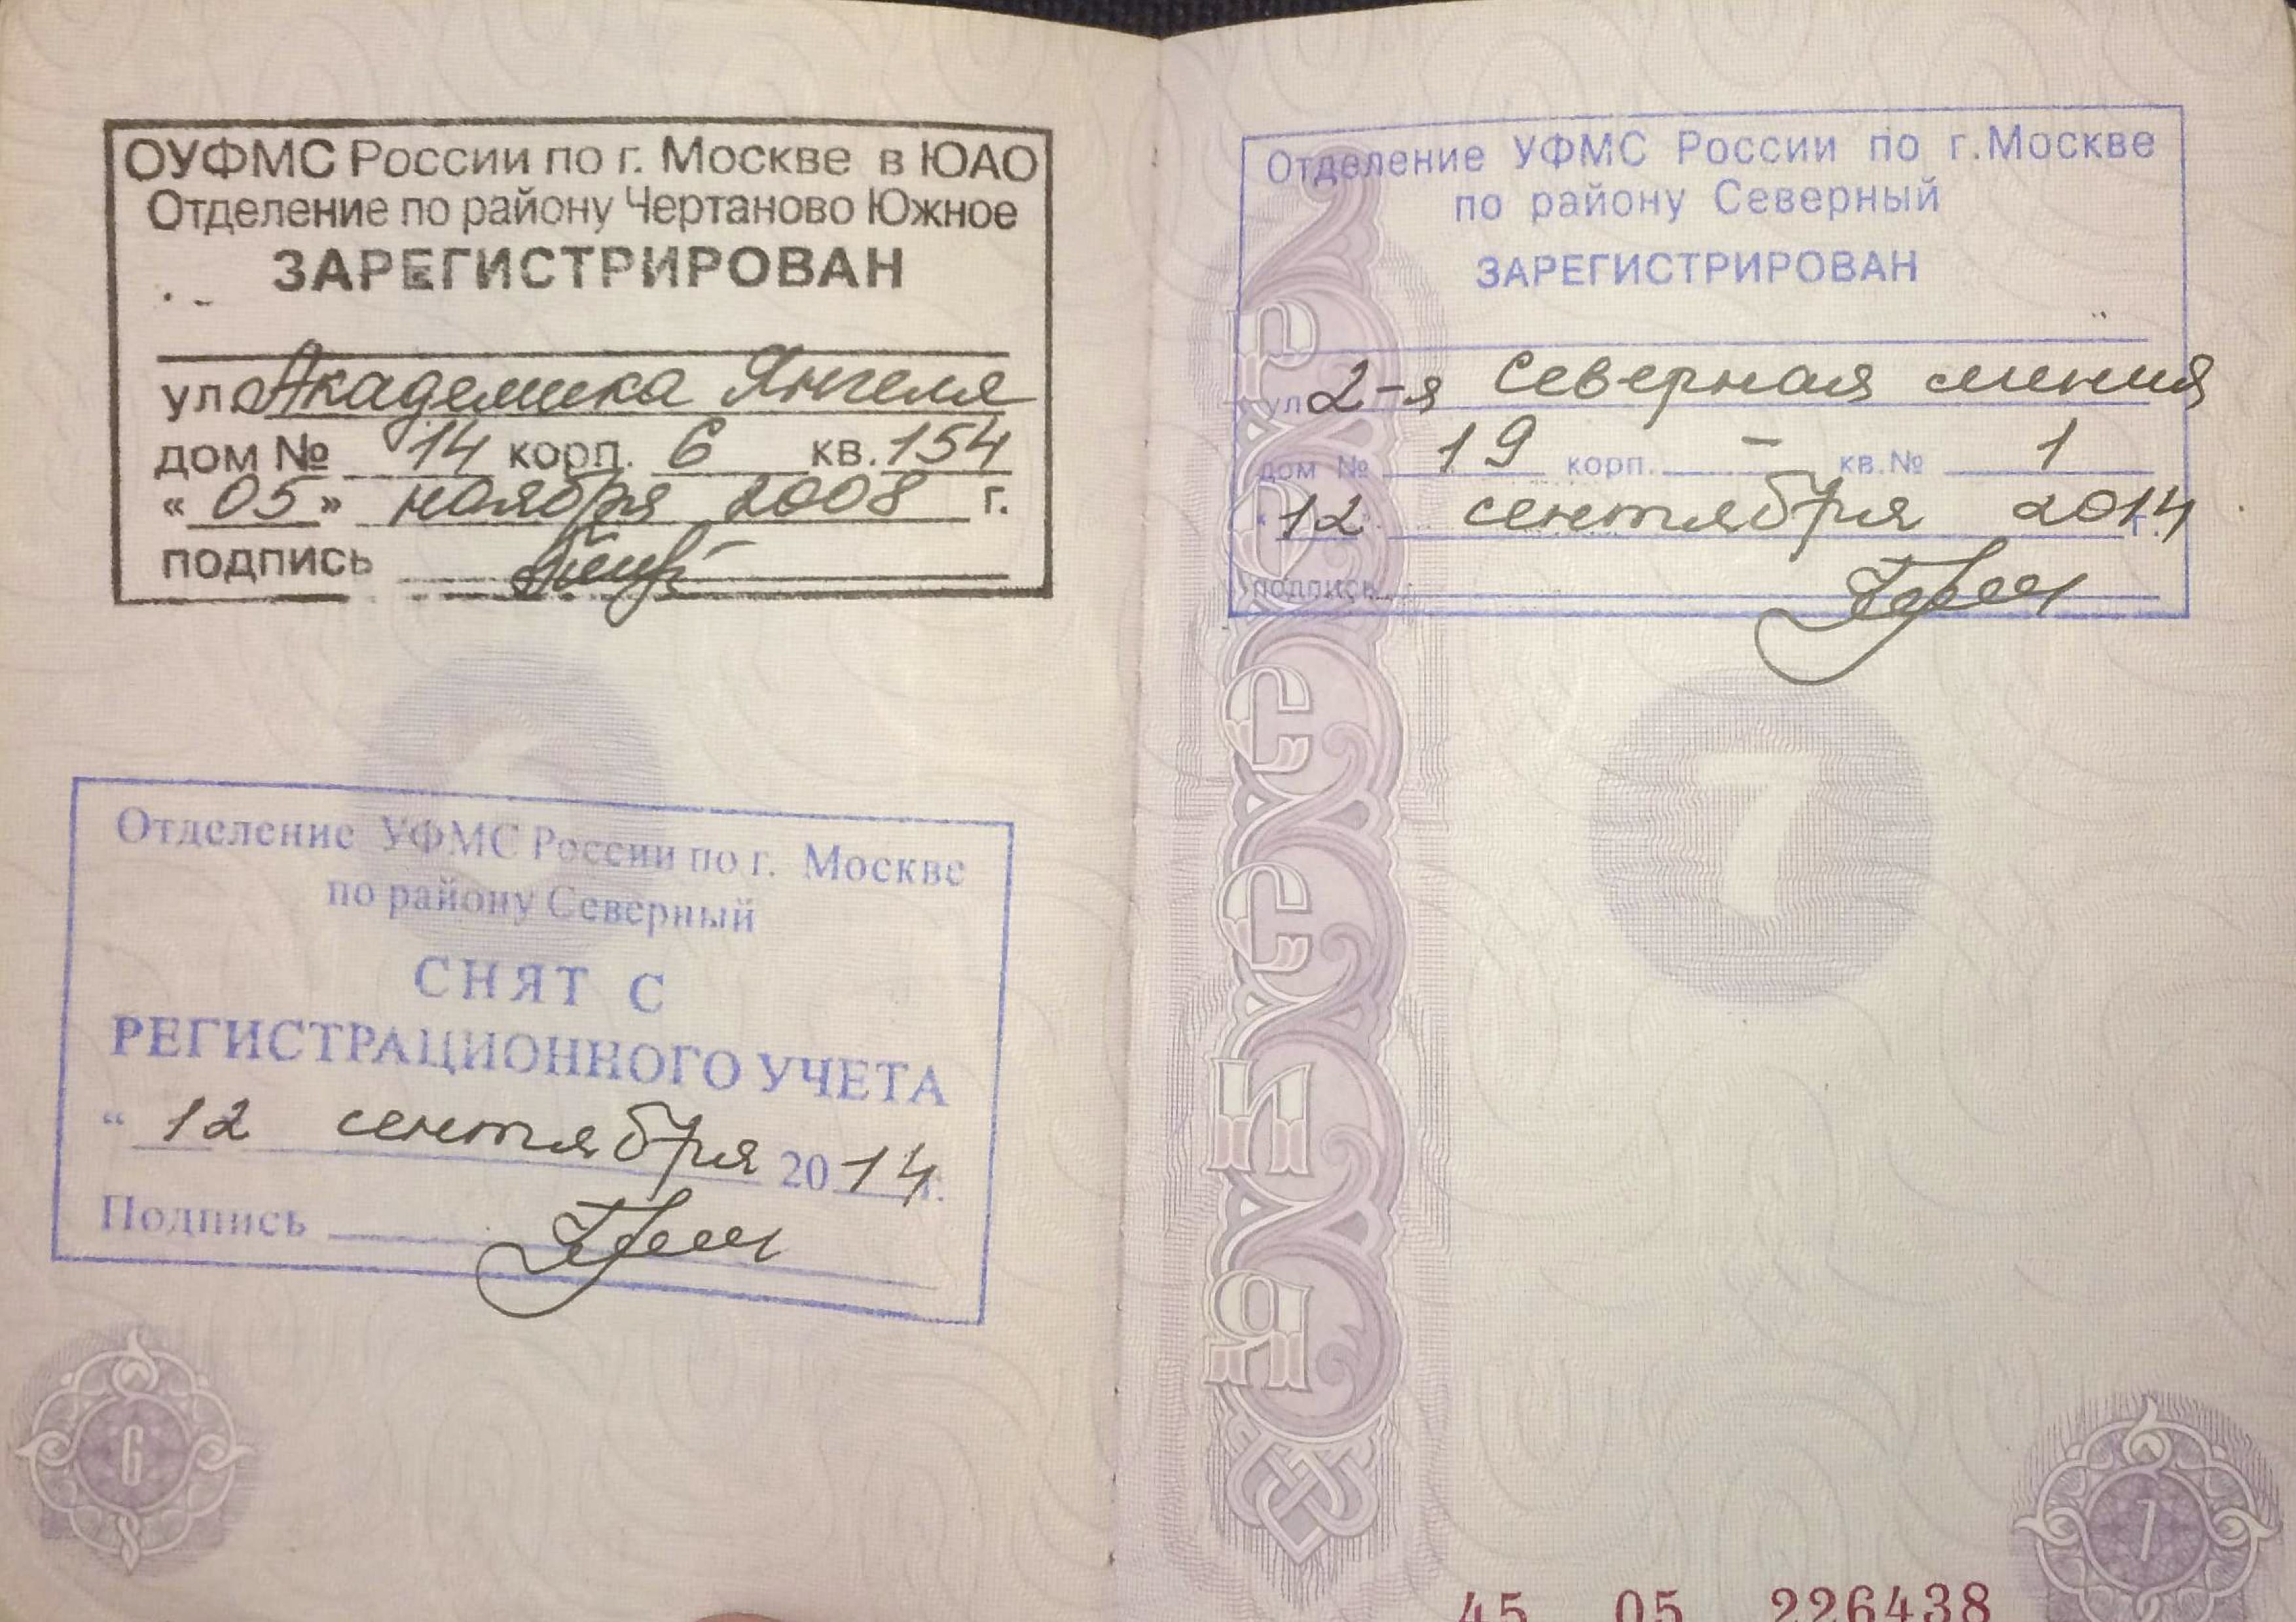 ОУФМС России по г. Москве в ЮАО
Отделение по району Чертаново Южное
ЗАРЕГИСТРИРОВАН
ул. Академика Янгеля
дом № 14 корп. 6 кв. 154
« 05 » ноября 2008 г.
подпись
Отделение УФМС России по г. Москве
по району Северный
СНЯТ С
РЕГИСТРАЦИОННОГО УЧЕТА
“ 12 сентября 2014 г.
Подпись
6
Отделение УФМС России по г.Москве
по району Северный
ЗАРЕГИСТРИРОВАН
ул 2-я Северная линия
дом № 19 корп. – кв.№ 1
" 12 сентября 2014 г.
подпись
РОССИЯ
7
7
45 05 226438